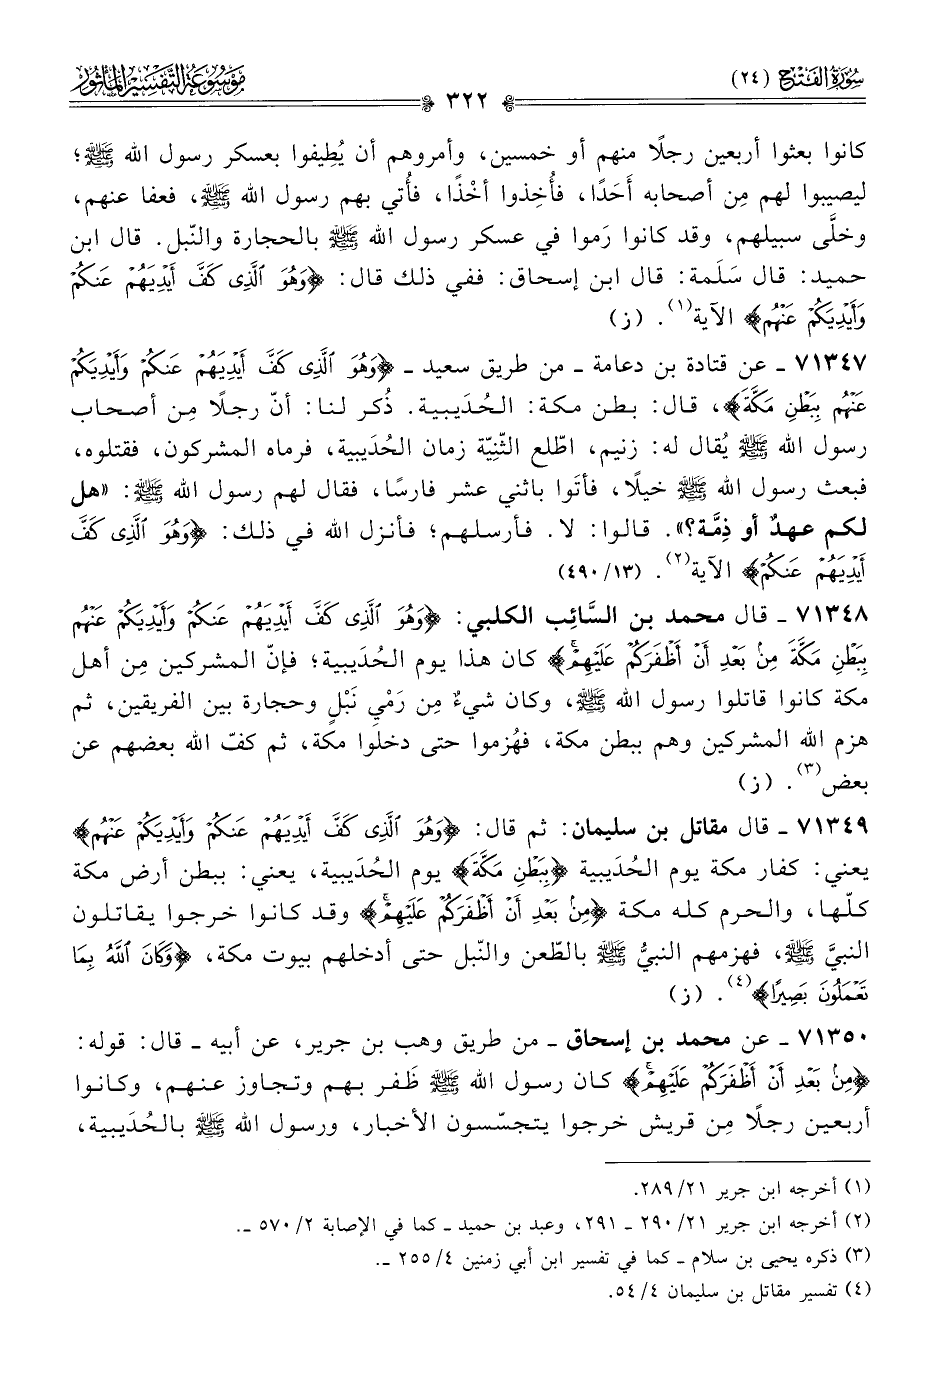 سورة الفتح (٢٤)
موسوعة التفسير المأثور
٣٢٢
كانوا بعثوا أربعين رجلًا منهم أو خمسين، وأمروهم أن يُطِيفوا بعسكر رسول الله ﷺ؛
ليصيبوا لهم مِن أصحابه أَحَدًا، فأُخِذوا أخْذًا، فأُتي بهم رسول الله ﷺ، فعفا عنهم،
وخلَّى سبيلهم، وقد كانوا رَموا في عسكر رسول الله ﷺ بالحجارة والنّبل. قال ابن
حميد: قال سَلَمة: قال ابن إسحاق: ففي ذلك قال: ﴿وَهُوَ ٱلَّذِى كَفَّ أَيْدِيَهُمْ عَنكُمْ
وَأَيْدِيَكُمْ عَنْهُم﴾ الآية(١). (ز)
٧١٣٤٧ ـ عن قتادة بن دعامة ـ من طريق سعيد ـ ﴿وَهُوَ ٱلَّذِى كَفَّ أَيْدِيَهُمْ عَنكُمْ وَأَيْدِيَكُمْ
عَنْهُم بِبَطْنِ مَكَّةَ﴾، قال: بطن مكة: الحُدَيبية. ذُكر لنا: أنّ رجلًا مِن أصحاب
رسول الله ﷺ يُقال له: زنيم، اطّلع الثّنِيّة زمان الحُدَيبية، فرماه المشركون، فقتلوه،
فبعث رسول الله ﷺ خيلًا، فأتَوا باثني عشر فارسًا، فقال لهم رسول الله ﷺ: «هل
لكم عهدٌ أو ذِمَّة؟». قالوا: لا. فأرسلهم؛ فأنزل الله في ذلك: ﴿وَهُوَ ٱلَّذِى كَفَّ
أَيْدِيَهُمْ عَنكُمْ﴾ الآية(٢). (١٣/ ٤٩٠)
٧١٣٤٨ ـ قال محمد بن السَّائِب الكلبي: ﴿وَهُوَ ٱلَّذِى كَفَّ أَيْدِيَهُمْ عَنكُمْ وَأَيْدِيَكُمْ عَنْهُم
بِبَطْنِ مَكَّةَ مِنۢ بَعْدِ أَنْ أَظْفَرَكُمْ عَلَيْهِمْ﴾ كان هذا يوم الحُدَيبية؛ فإنّ المشركين مِن أهل
مكة كانوا قاتلوا رسول الله ﷺ، وكان شيءٌ مِن رَمْيِ نَبْلٍ وحجارة بين الفريقين، ثم
هزم الله المشركين وهم ببطن مكة، فهُزموا حتى دخلوا مكة، ثم كفّ الله بعضهم عن
بعض(٣). (ز)
٧١٣٤٩ ـ قال مقاتل بن سليمان: ثم قال: ﴿وَهُوَ ٱلَّذِى كَفَّ أَيْدِيَهُمْ عَنكُمْ وَأَيْدِيَكُمْ عَنْهُم﴾
يعني: كفار مكة يوم الحُدَيبية ﴿بِبَطْنِ مَكَّةَ﴾ يوم الحُدَيبية، يعني: ببطن أرض مكة
كلّها، والحرم كله مكة ﴿مِنۢ بَعْدِ أَنْ أَظْفَرَكُمْ عَلَيْهِمْ﴾ وقد كانوا خرجوا يقاتلون
النبيَّ ﷺ، فهزمهم النبيُّ ﷺ بالطّعن والنّبل حتى أدخلهم بيوت مكة، ﴿وَكَانَ ٱللَّهُ بِمَا
تَعْمَلُونَ بَصِيرًا﴾(٤). (ز)
٧١٣٥٠ ـ عن محمد بن إسحاق ـ من طريق وهب بن جرير، عن أبيه ـ قال: قوله:
﴿مِنۢ بَعْدِ أَنْ أَظْفَرَكُمْ عَلَيْهِمْ﴾ كان رسول الله ﷺ ظَفر بهم وتجاوز عنهم، وكانوا
أربعين رجلًا مِن قريش خرجوا يتجسّسون الأخبار، ورسول الله ﷺ بالحُدَيبية،
(١) أخرجه ابن جرير ٢١/ ٢٨٩.
(٢) أخرجه ابن جرير ٢١/ ٢٩٠ ـ ٢٩١، وعبد بن حميد ـ كما في الإصابة ٢/ ٥٧٠ ـ.
(٣) ذكره يحيى بن سلام ـ كما في تفسير ابن أبي زمنين ٤/ ٢٥٥ ـ.
(٤) تفسير مقاتل بن سليمان ٤/ ٥٤.